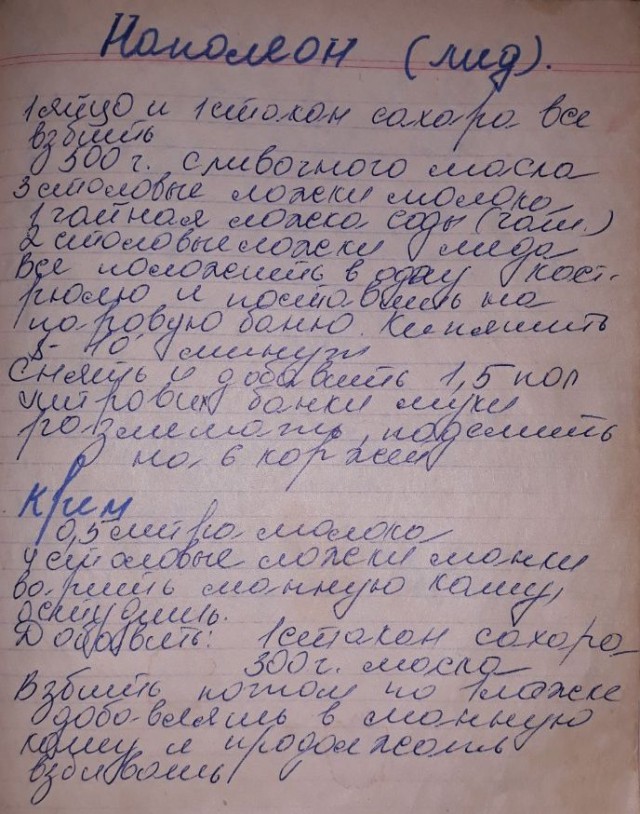 Наполеон (мид).
1 яйцо и 1 стакан сахара все
взбить
300 г. сливочного масла
3 столовые ложки молока
1 чайная ложка соды (гаш.)
2 столовые ложки меда
Все положить в одну каст-
рюлю и поставить на
паровую баню. Кипятить
5-10 минут
Снять и добавить 1,5 пол
литровых банки муки
размешать, поделить
на 6 коржей
Крем
0,5 литра молока
4 столовые ложки манки
варить манную кашу,
остудить.
Добавить: 1 стакан сахара
300 г. масла
Взбить потом по 1 ложке
добавлять в манную
кашу и продолжать
взбивать